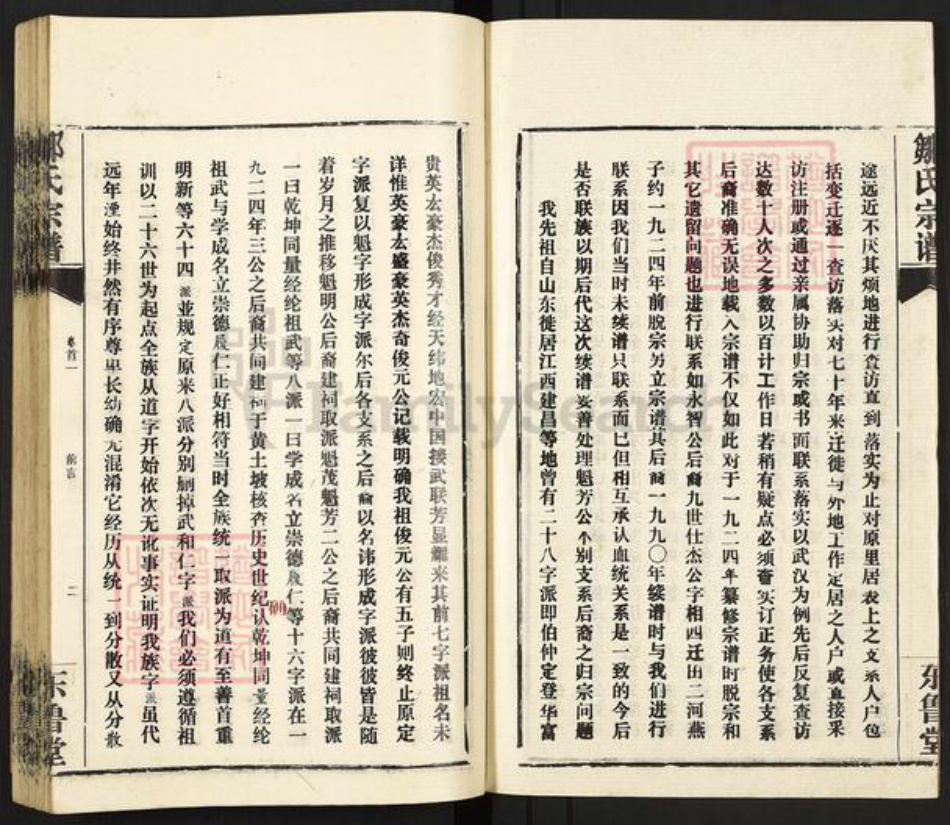 邹氏宗谱
途远近不厌其烦地进行查访直到落实为止对原里居表上之支系人户包
括变迁逐一查访落实对七十年来迁徙与外地工作定居之人户或直接采
访注册或通过亲属协助归宗或书面联系落实以武汉为例先后反复查访
达数十人次之多数以百计工作日若稍有疑点必须查实订正务使各支系
后裔准确无误地载入宗谱不仅如此对于一九二四年纂修宗谱时脱宗和
其它遗留问题也进行联系如永智公后裔九世仕杰公字相四迁出二河燕
子约一九二四年前脱宗另立宗谱其后裔一九九〇年续谱时与我们进行
联系因我们当时未续谱只联系而已但相互承认血统关系是一致的今后
是否联族以期后代这次续谱妥善处理魁芳公个别支系后裔之归宗问题
我先祖自山东徙居江西建昌等地曾有二十八字派即伯仲定登华富
东鲁堂
贵英太豪杰俊秀才经天纬地宏中国接武联芳显耀来其前七字派祖名未
详惟英豪太盛豪英杰奇俊元公记载明确我祖俊元公有五子则终止原定
字派复以魁字形成字派尔后各支系之后裔以名讳形成字派彼彼皆是随
着岁月之推移魁明公后裔建祠取派魁茂魁芳二公之后裔共同建祠取派
一曰乾坤同量经纶祖武等八派一曰学成名立崇德履仁等十六字派在一
九二四年三公之后裔共同建祠于黄土坡核查历史世纪认乾坤同量经纶
祖武与学成名立崇德履仁正好相符当时全族统一取派为道有至善首重
明新等六十四派並规定原来八派分别删掉武和仁字派我们必须遵循祖
训以二十六世为起点全族从道字开始依次无讹事实证明我族字派虽代
远年湮始终井然有序尊卑长幼确无混淆它经历从统一到分散又从分散
邹氏宗谱
卷首一
前言
二
东鲁堂
FamilySearch